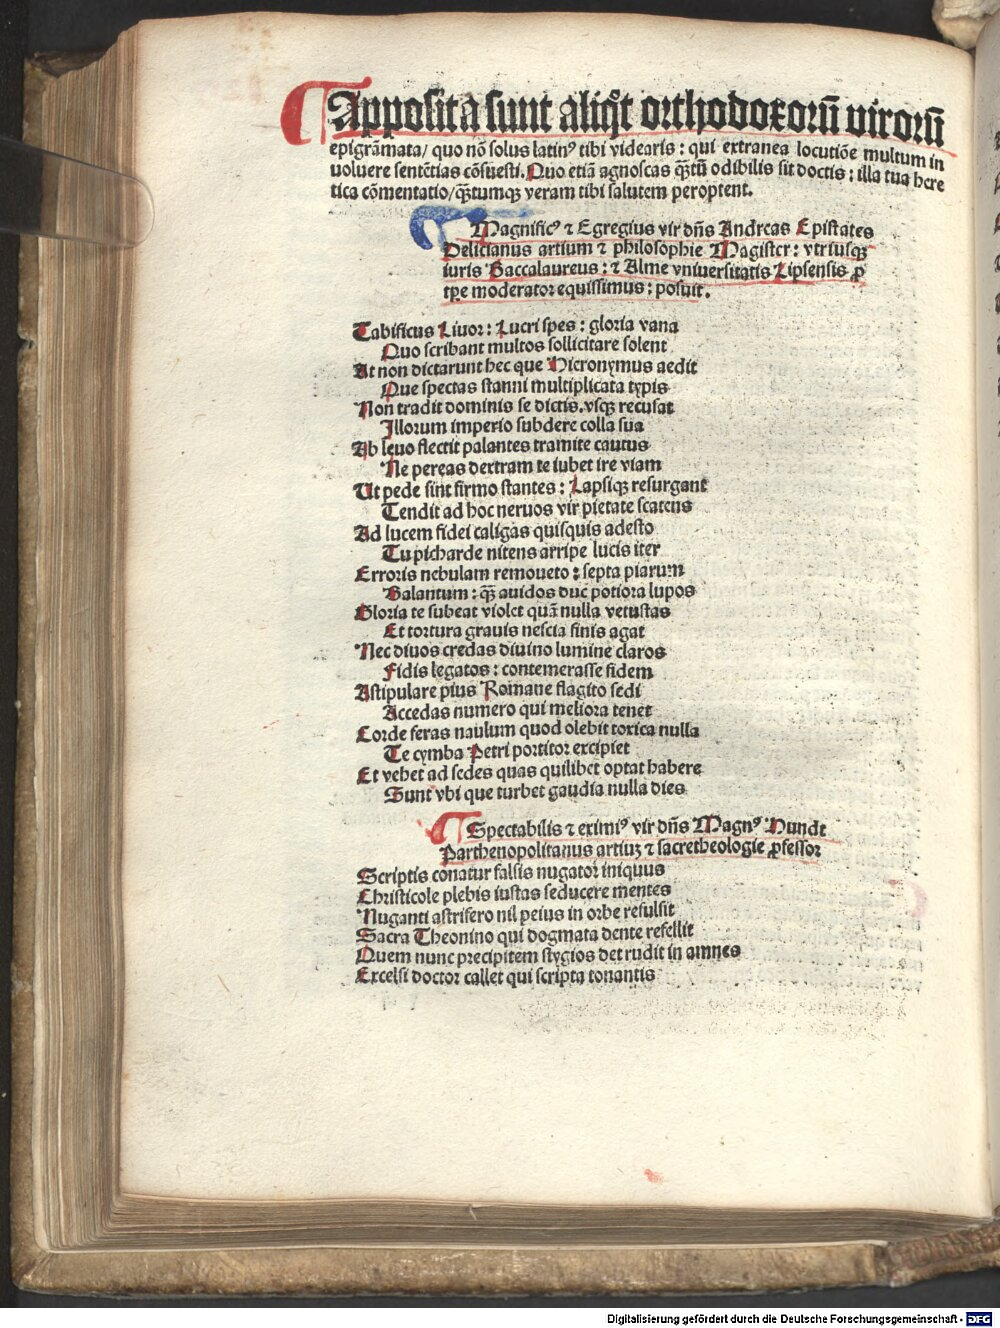 Apposita sunt aliq̃t orthodoxorũ virorũ
epigrãmata/ quo nõ solus latinꝰ tibi videaris: qui extranea locutiõe multum in
uoluere sentẽtias cõsuesti. Quo etiã agnoscas q̃ꝫtũ odibilis sit doctis: illa tua here
tica cõmentatio/ q̃ꝫtumqꝫ veram tibi salutem peroptent.
Magnificꝰ ⁊ Egregius vir dñs Andreas Epistates
Delicianus artium ⁊ philosophie Magister: vtriusqꝫ
iuris Baccalaureus: ⁊ Alme vniuersitatis Lipsensis ꝓ
tꝑe moderator equissimus: posuit.
Tabificus Liuor: Lucri spes: gloria vana
Quo scribant multos sollicitare solent
At non dictarunt hec que Hieronymus aedit
Que spectas stanni multiplicata typis
Non tradit dominis se dictis. vsqꝫ recusat
Illorum imperio subdere colla sua
Ab leuo flectit palantes tramite cautus
Ne pereas dextram te iubet ire viam
Ut pede sint firmo stantes: Lapsiqꝫ resurgant
Tendit ad hoc neruos vir pietate scatens
Ad lucem fidei caligas quisquis adesto
Tu picharde nitens arripe lucis iter
Erroris nebulam remoueto: septa piarum
Balantum: q̃ꝫ auidos duc potiora lupos
Gloria te subeat violet quã nulla vetustas
Et tortura grauis nescia finis agat
Nec diuos credas diuino lumine claros
Fidis legatos: contemerasse fidem
Astipulare pius Romane flagito sedi
Accedas numero qui meliora tenet
Corde feras naulum quod olebit toxica nulla
Te cymba Petri portitor excipiet
Et vehet ad sedes quas quilibet optat habere
Sunt vbi que turbet gaudia nulla dies
Spectabilis ⁊ eximiꝰ vir dñs Magnꝰ Hundt
Parthenopolitanus artiuꝫ ⁊ sacretheologie ꝓfessor
Scriptis conatur falsis nugator iniquus
Christicole plebis iustas seducere mentes
Nuganti astrifero nil peius in orbe resulsit
Sacra Theonino qui dogmata dente refellit
Quem nunc precipitem stygios detrudit in amnes
Excelsi doctor callet qui scripta tonantis
Digitalisierung gefördert durch die Deutsche Forschungsgemeinschaft - DFG